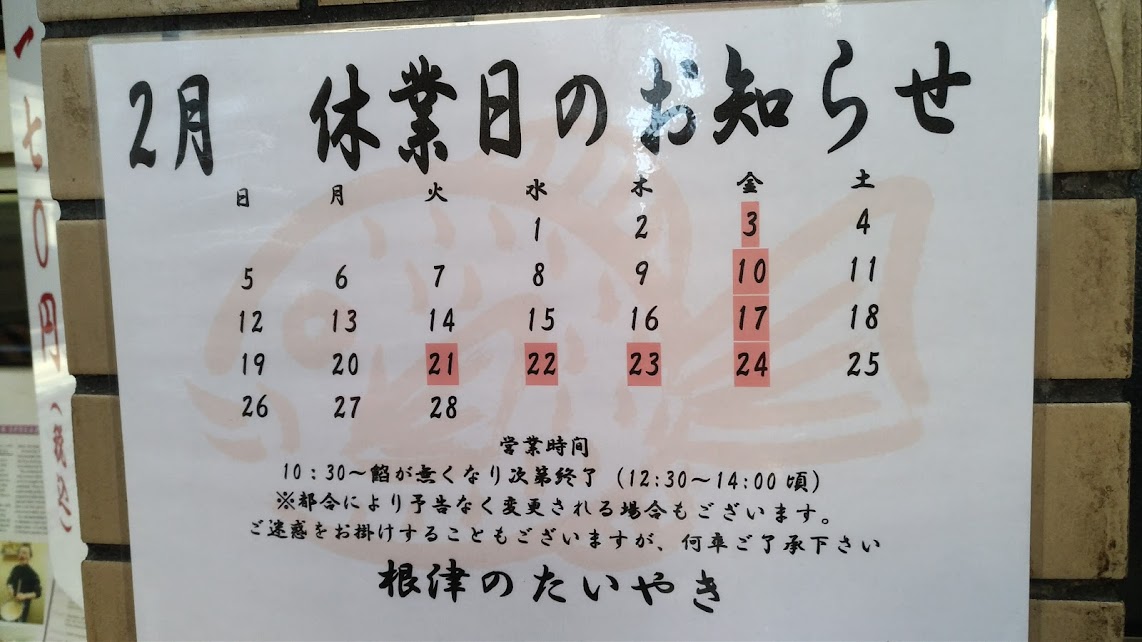 2月 休業日のお知らせ
日 月 火 水 木 金 土
1 2 3 4
5 6 7 8 9 10 11
12 13 14 15 16 17 18
19 20 21 22 23 24 25
26 27 28
営業時間
10:30~餡が無くなり次第終了 (12:30~14:00頃)
※都合により予告なく変更される場合もございます。
ご迷惑をお掛けすることもございますが、何卒ご了承下さい
根津のたいやき
七〇円(税込)